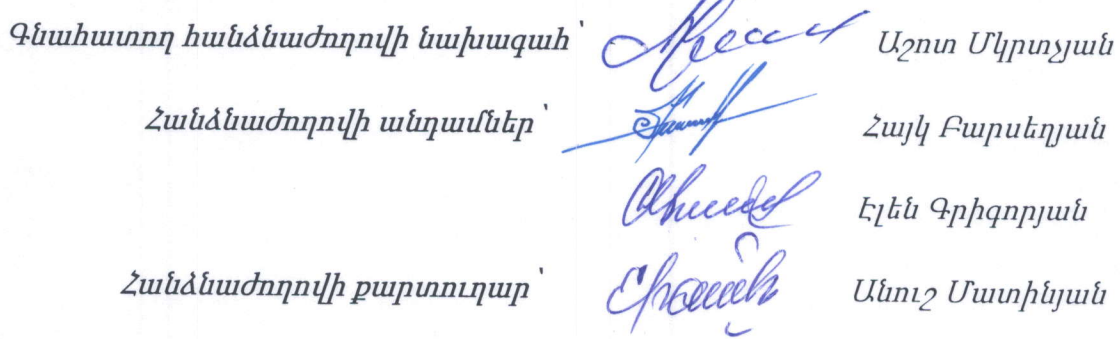 Գնահատող հանձնաժողովի նախագահ՝ Աշոտ Մկրտչյան
Հանձնաժողովի անդամներ՝ Հայկ Բարսեղյան
Էլեն Գրիգորյան
Հանձնաժողովի քարտուղար՝ Անուշ Մատինյան